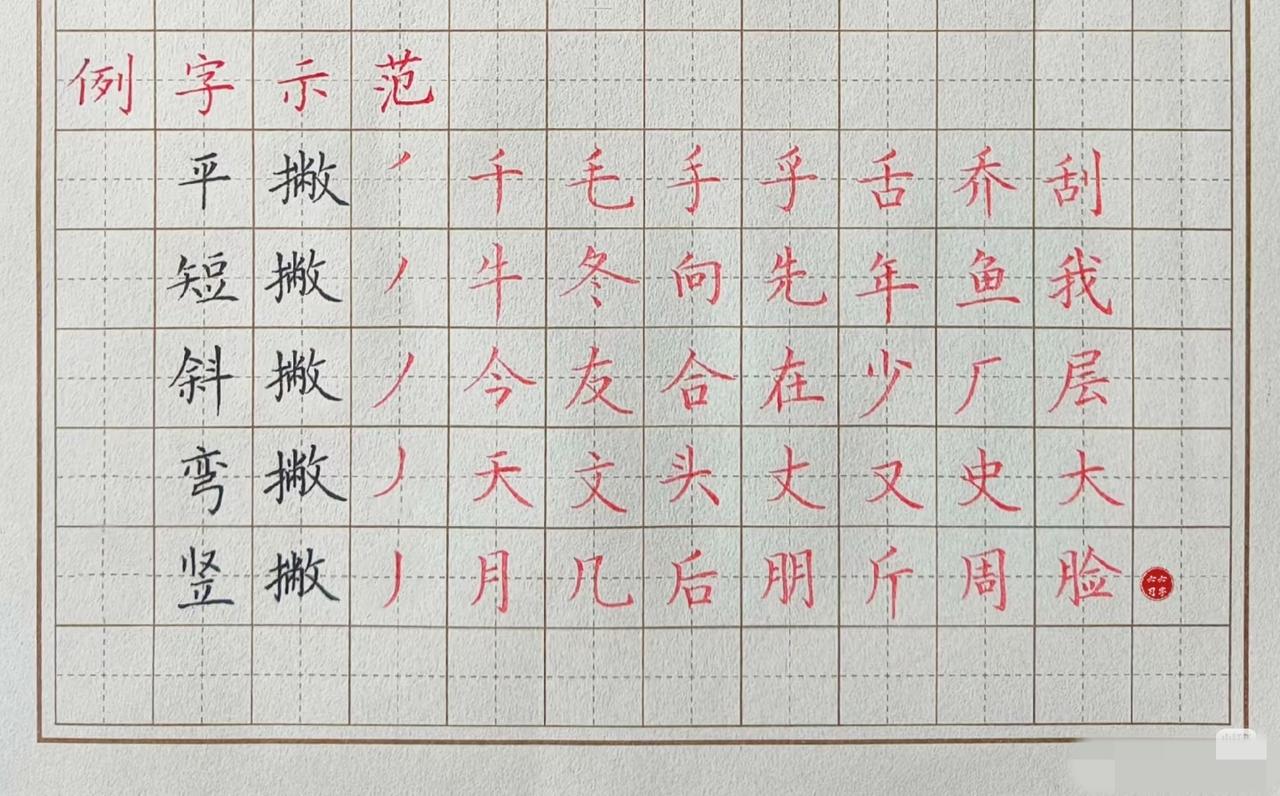 例字示范
平撇㇒千毛手乎舌乔刮
短撇㇒牛冬向先年鱼我
斜撇丿今友合在少厂层
弯撇丿天文头丈又史大
竖撇丿月几后朋斤周脸